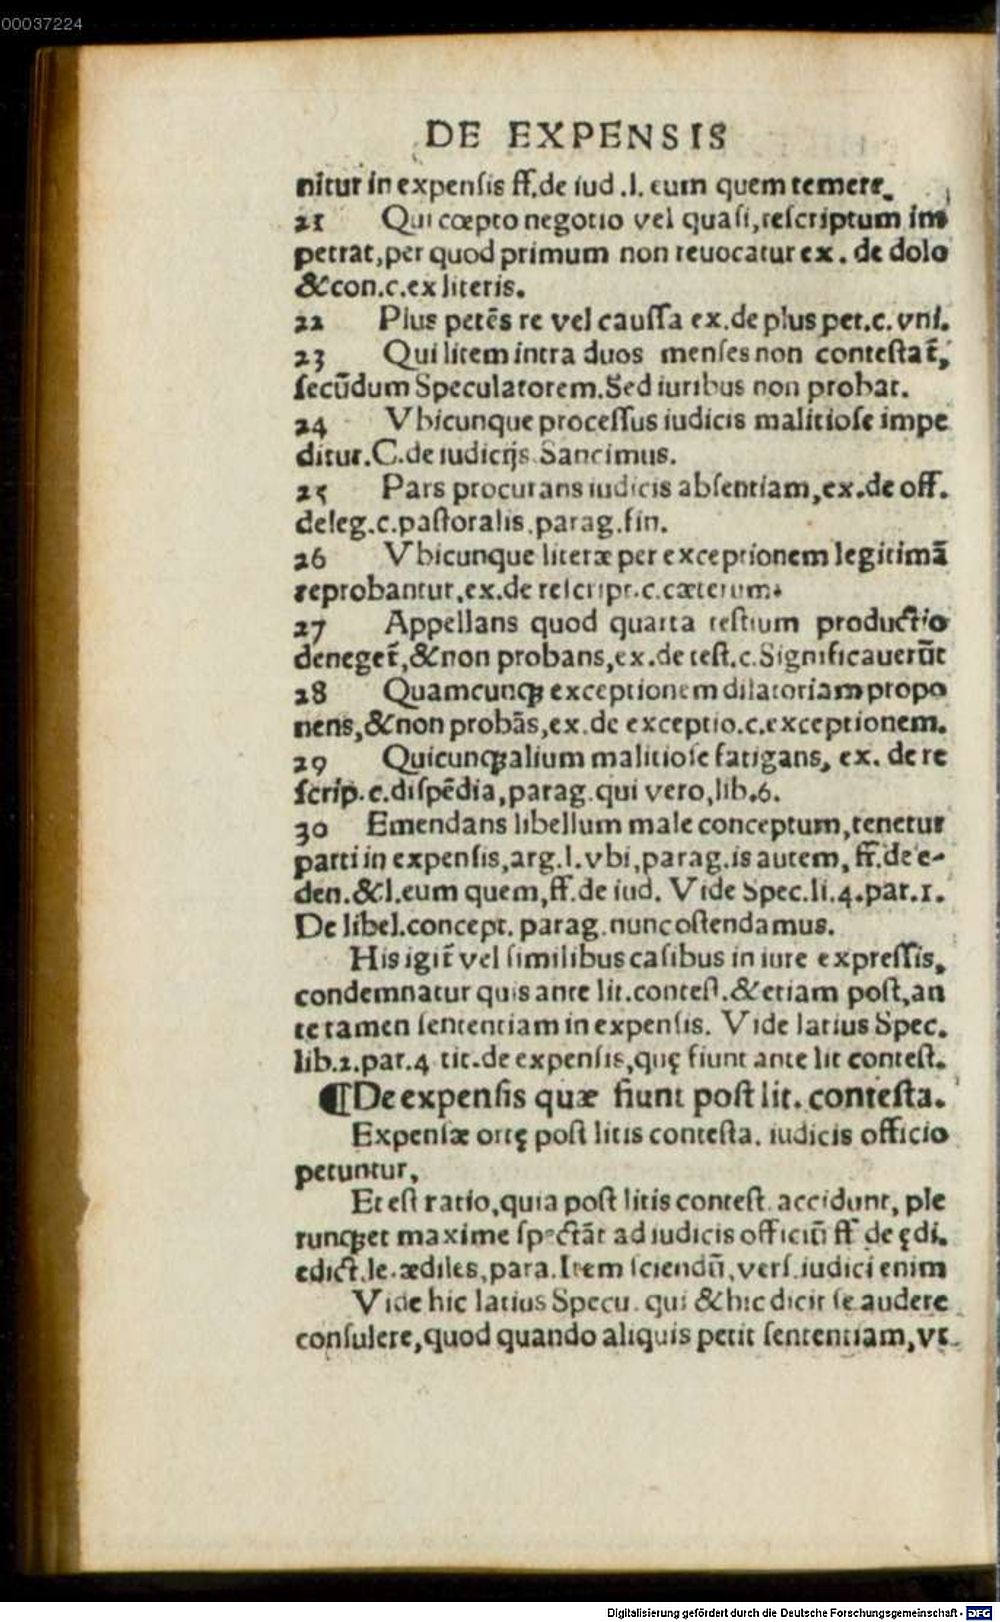 00037224
DE EXPENSIS
nitur in expenſis ff.de iud.l. eum quem temere.
21 Qui cœpto negotio vel quaſi,reſcriptum im
petrat,per quod primum non reuocatur ex. de dolo
&con.c.ex literis.
22 Plus petēs re vel cauſſa ex.de plus pet.c.vni.
23 Qui litem intra duos menſes non conteſtat̄,
ſecūdum Speculatorem.Sed iuribus non probat.
24 Vbicunque proceſſus iudicis malitioſe impe
ditur.C.de iudicijs Sancimus.
25 Pars procurans iudicis abſentiam,ex.de off.
deleg.c.paſtoralis.parag.fin.
26 Vbicunque literæ per exceptionem legitimā
reprobantur,ex.de reſcript.c.cæterum.
27 Appellans quod quarta teſtium productio
deneget̄,&non probans,ex.de teſt.c.Significauerūt
28 Quamcunqꝫ exceptionem dilatoriam propo
nens,&non probās,ex.de exceptio.c.exceptionem.
29 Quicunqꝫ alium malitioſe fatigans, ex. de re
ſcrip.c.diſpēdia,parag.qui vero,lib.6.
30 Emendans libellum male conceptum,tenetur
parti in expenſis,arg.l.vbi,parag.is autem, ff.de e-
den.&l.eum quem,ff.de iud. Vide Spec.li.4.par.1.
De libel.concept. parag.nunc oſtendamus.
His igit̄ vel ſimilibus caſibus in iure expreſſis,
condemnatur quis ante lit.conteſt.&etiam poſt,an
te tamen ſententiam in expenſis. Vide latius Spec.
lib.2.par.4 tit.de expenſis,quę fiunt ante lit conteſt.
¶De expenſis quæ fiunt poſt lit. conteſta.
Expenſæ ortę poſt litis conteſta. iudicis officio
petuntur,
Et eſt ratio,quia poſt litis conteſt. accidunt, ple
runqꝫ et maxime ſpectāt ad iudicis officiū ff de ędi.
edict.le.ædiles,para.Item ſciendū,verſ.iudici enim
Vide hic latius Specu. qui &hic dicit ſe audere
conſulere,quod quando aliquis petit ſententiam,vt
Digitalisierung gefördert durch die Deutsche Forschungsgemeinschaft - DFG